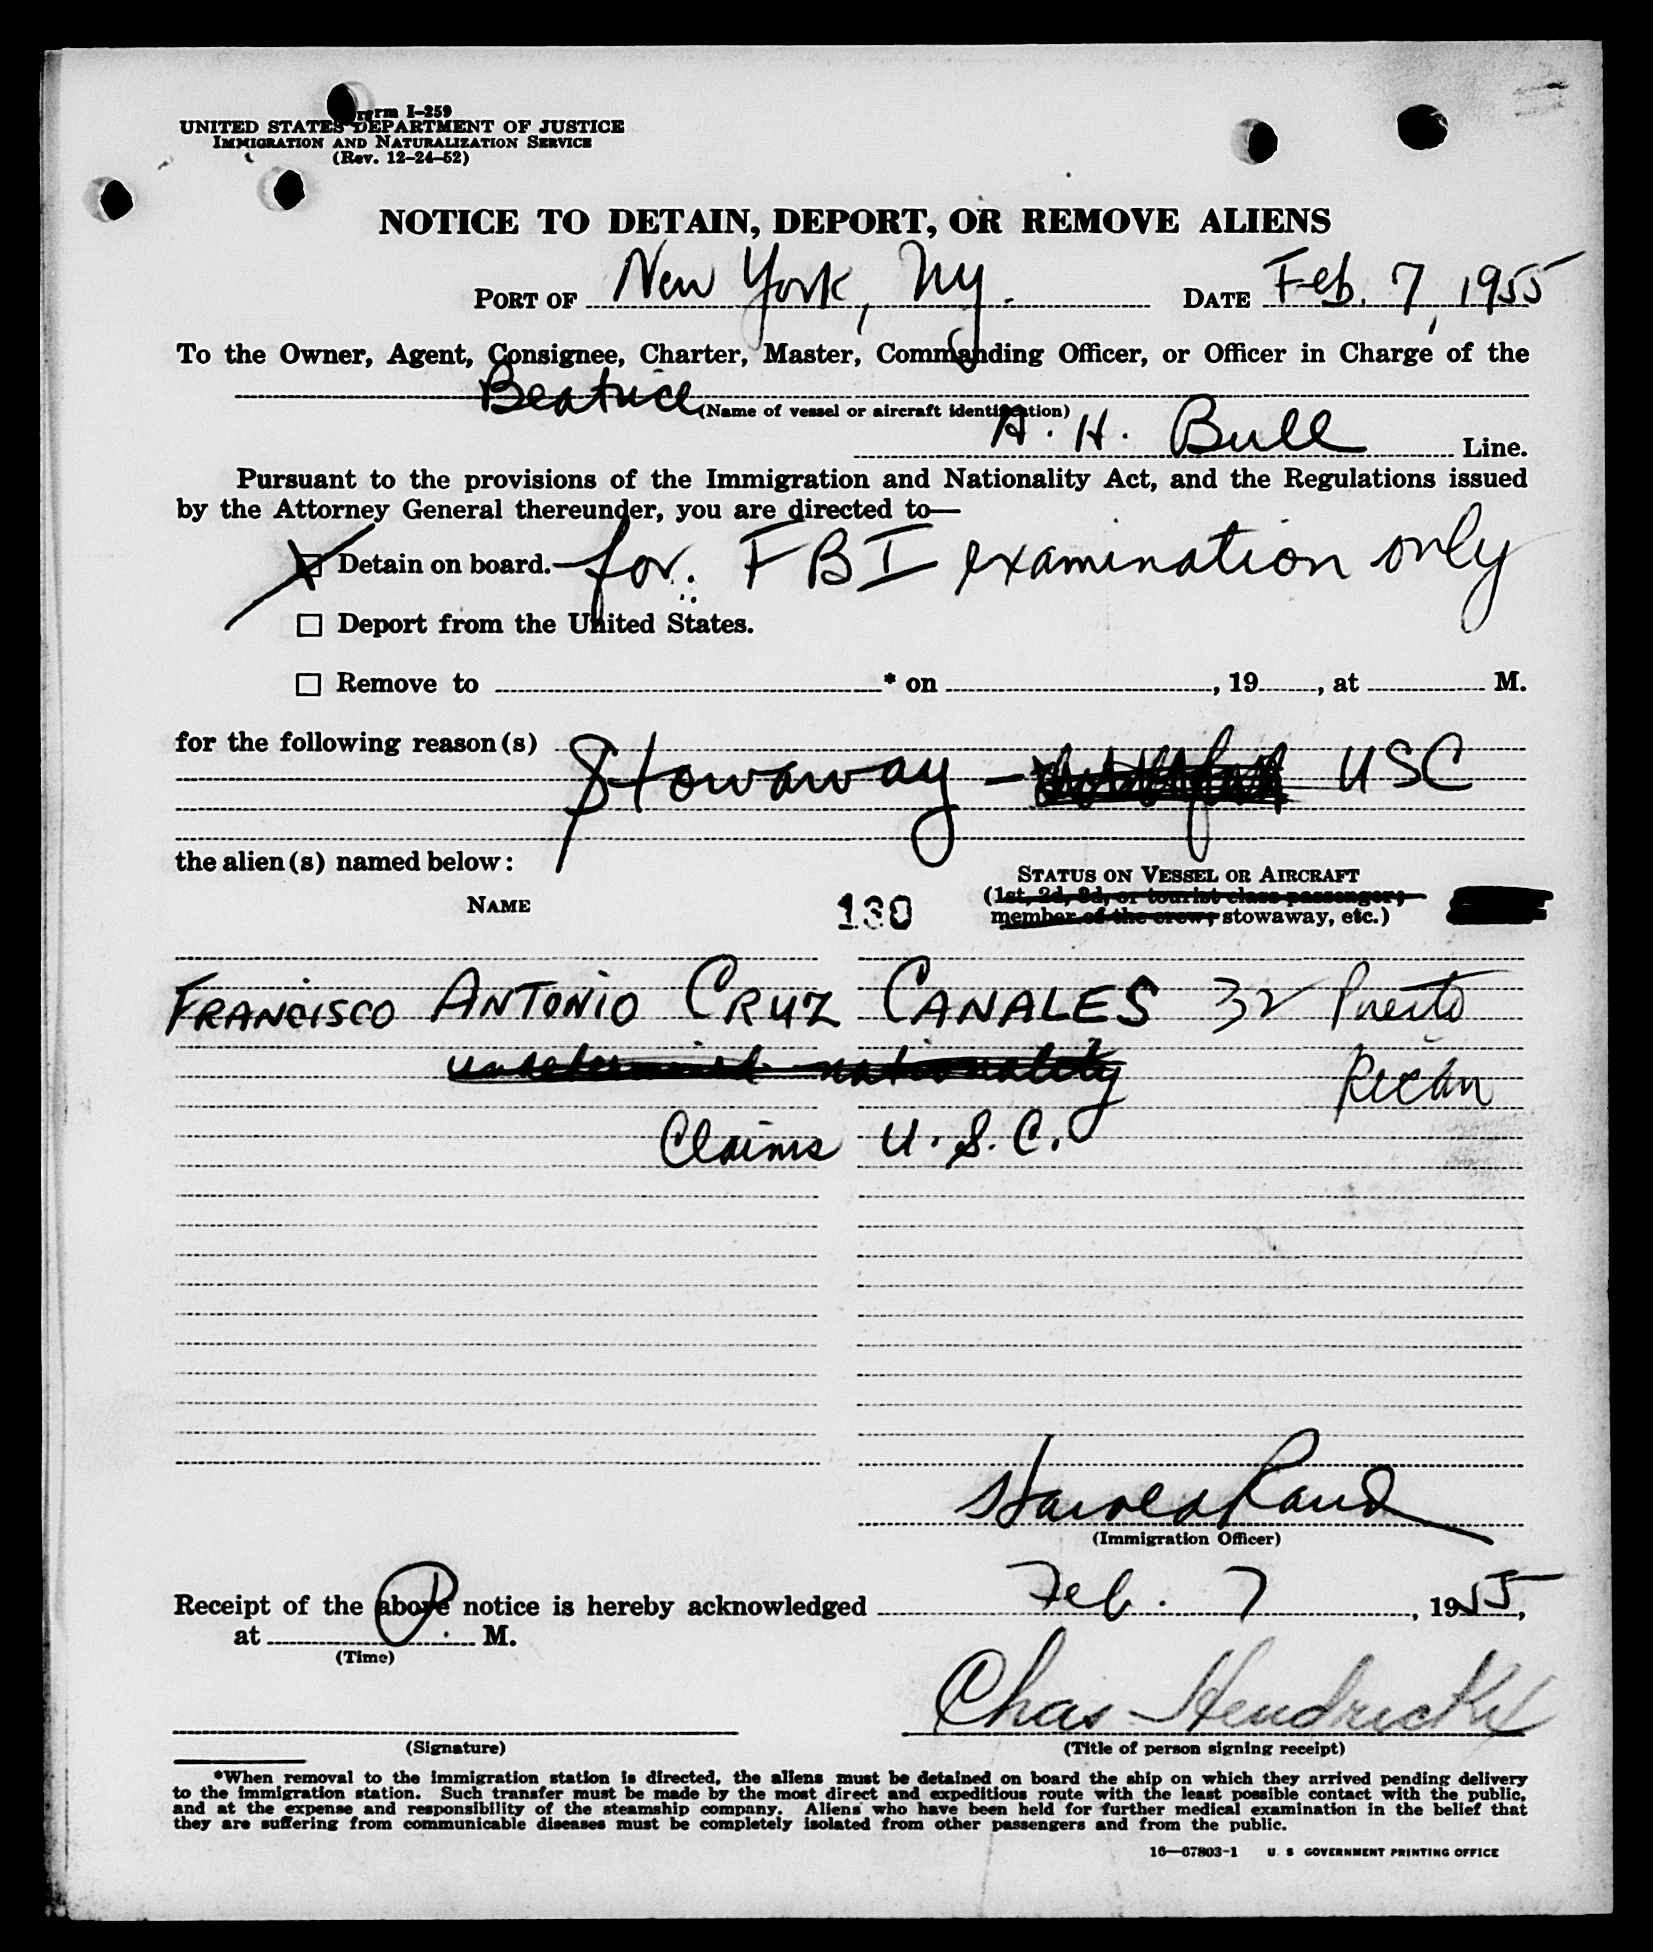 Form I-259
UNITED STATES DEPARTMENT OF JUSTICE
IMMIGRATION AND NATURALIZATION SERVICE
(Rev. 12-24-52)
NOTICE TO DETAIN, DEPORT, OR REMOVE ALIENS
PORT OF New York, Ny. DATE Feb. 7, 1955
To the Owner, Agent, Consignee, Charter, Master, Commanding Officer, or Officer in Charge of the
Beatrice
(Name of vessel or aircraft identification)
A. H. Bull Line.
Pursuant to the provisions of the Immigration and Nationality Act, and the Regulations issued
by the Attorney General thereunder, you are directed to—
Detain on board. — for FBI examination only
Deport from the United States.
Remove to * on , 19 , at M.
for the following reason(s) Stowaway - USC
the alien(s) named below:
STATUS ON VESSEL OR AIRCRAFT
NAME 130 (1st, 2d, 3d, or tourist class passenger;
member of the crew; stowaway, etc.)
FRANCISCO ANTONIO CRUZ CANALES 32 Puerto
undetermined nationality Rican
Claims U.S.C.
Harold Rand
(Immigration Officer)
Receipt of the above notice is hereby acknowledged Feb. 7, 1955,
at P. M.
(Time)
Chas Hendricks
(Signature) (Title of person signing receipt)
*When removal to the immigration station is directed, the aliens must be detained on board the ship on which they arrived pending delivery
to the immigration station. Such transfer must be made by the most direct and expeditious route with the least possible contact with the public,
and at the expense and responsibility of the steamship company. Aliens who have been held for further medical examination in the belief that
they are suffering from communicable diseases must be completely isolated from other passengers and from the public.
16—67803-1 U. S GOVERNMENT PRINTING OFFICE